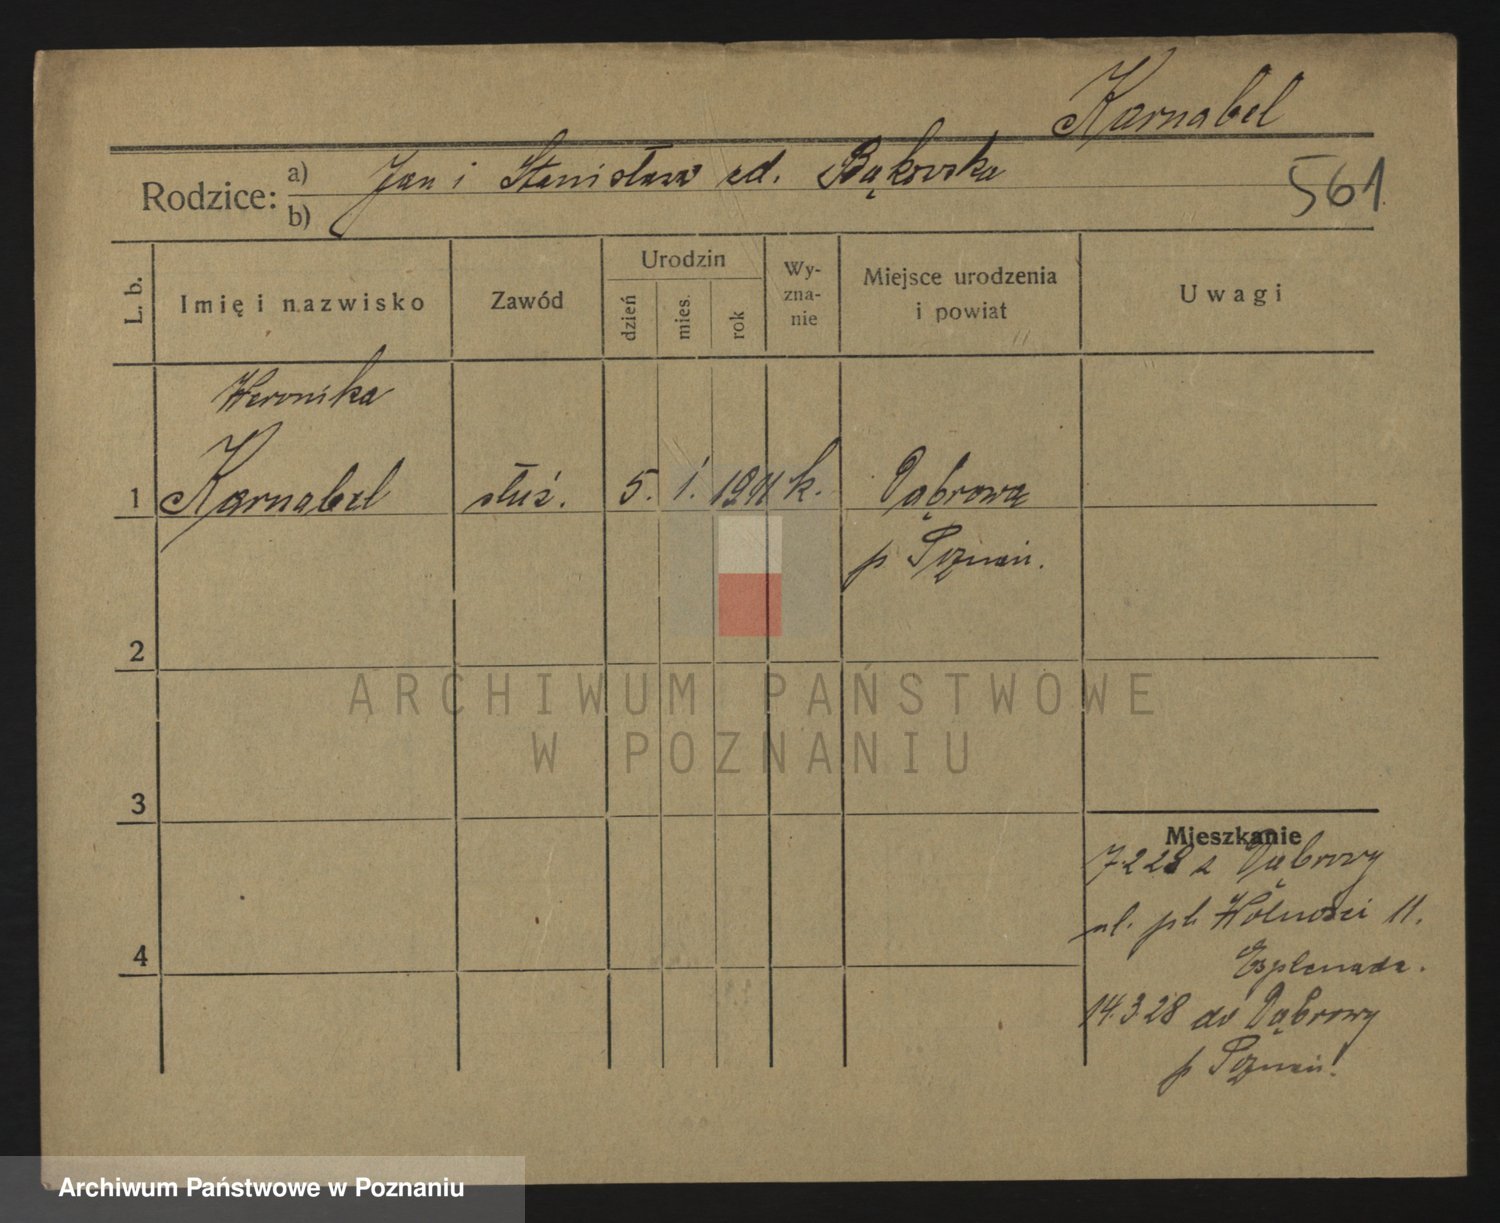 Karnabel
Rodzice: a) Jan i Stanisława zd. Bąkowska
b)
561
L. b.
Imię i nazwisko
Zawód
Urodzin
dzień
mies.
rok
Wy-
zna-
nie
Miejsce urodzenia
i powiat
Uwagi
Weronika
1 Karnabel służ. 5. 1. k. Dąbrowa
p Poznań.
2
ARCHIWUM PAŃSTWOWE
W POZNANIU
3
4
Mieszkanie
7.2.28 z Dąbrowy
ul. pl. Wolności 11.
Esplanada.
14.3.28 do Dąbrowy
p Poznań.
Archiwum Państwowe w Poznaniu